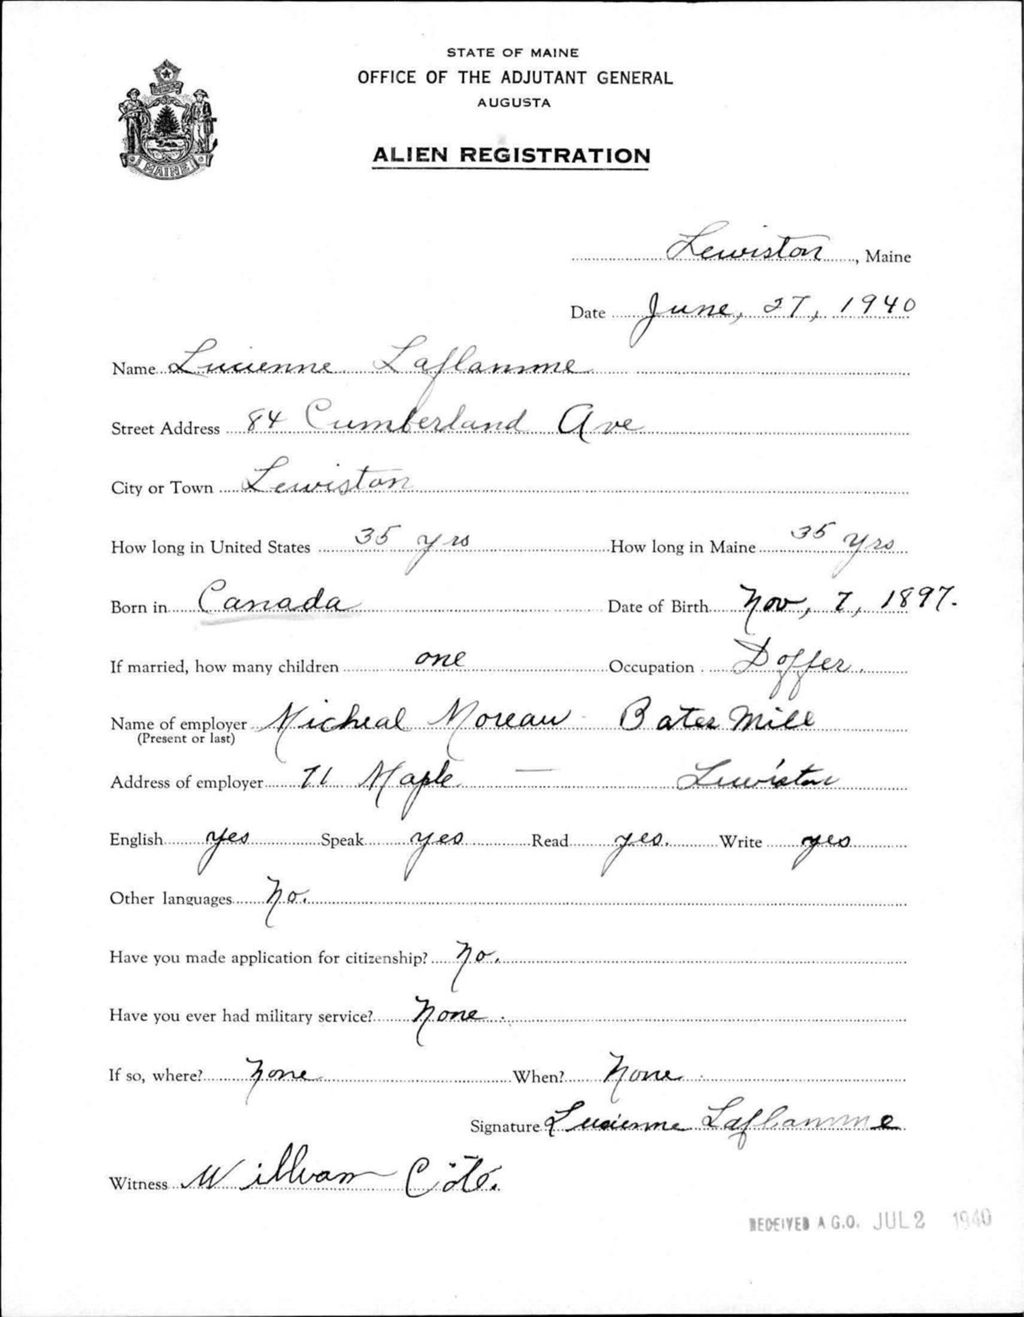 STATE OF MAINE
OFFICE OF THE ADJUTANT GENERAL
AUGUSTA
ALIEN REGISTRATION
MAINE
Lewiston, Maine
Date June, 27, 1940
Name Lucienne Laflamme
Street Address 84 Cumberland Ave
City or Town Lewiston
How long in United States 35 yrs How long in Maine 35 yrs
Born in Canada Date of Birth Nov, 7, 1897.
If married, how many children one Occupation Doffer.
Name of employer Micheal Moreau - Bates Mill
(Present or last)
Address of employer 71 Maple — Lewiston
English yes Speak yes Read yes. Write yes
Other languages No.
Have you made application for citizenship? No.
Have you ever had military service? None.
If so, where? None When? None
Signature Lucienne Laflamme
Witness William Côté.
RECEIVED A.G.O. JUL 2 1940